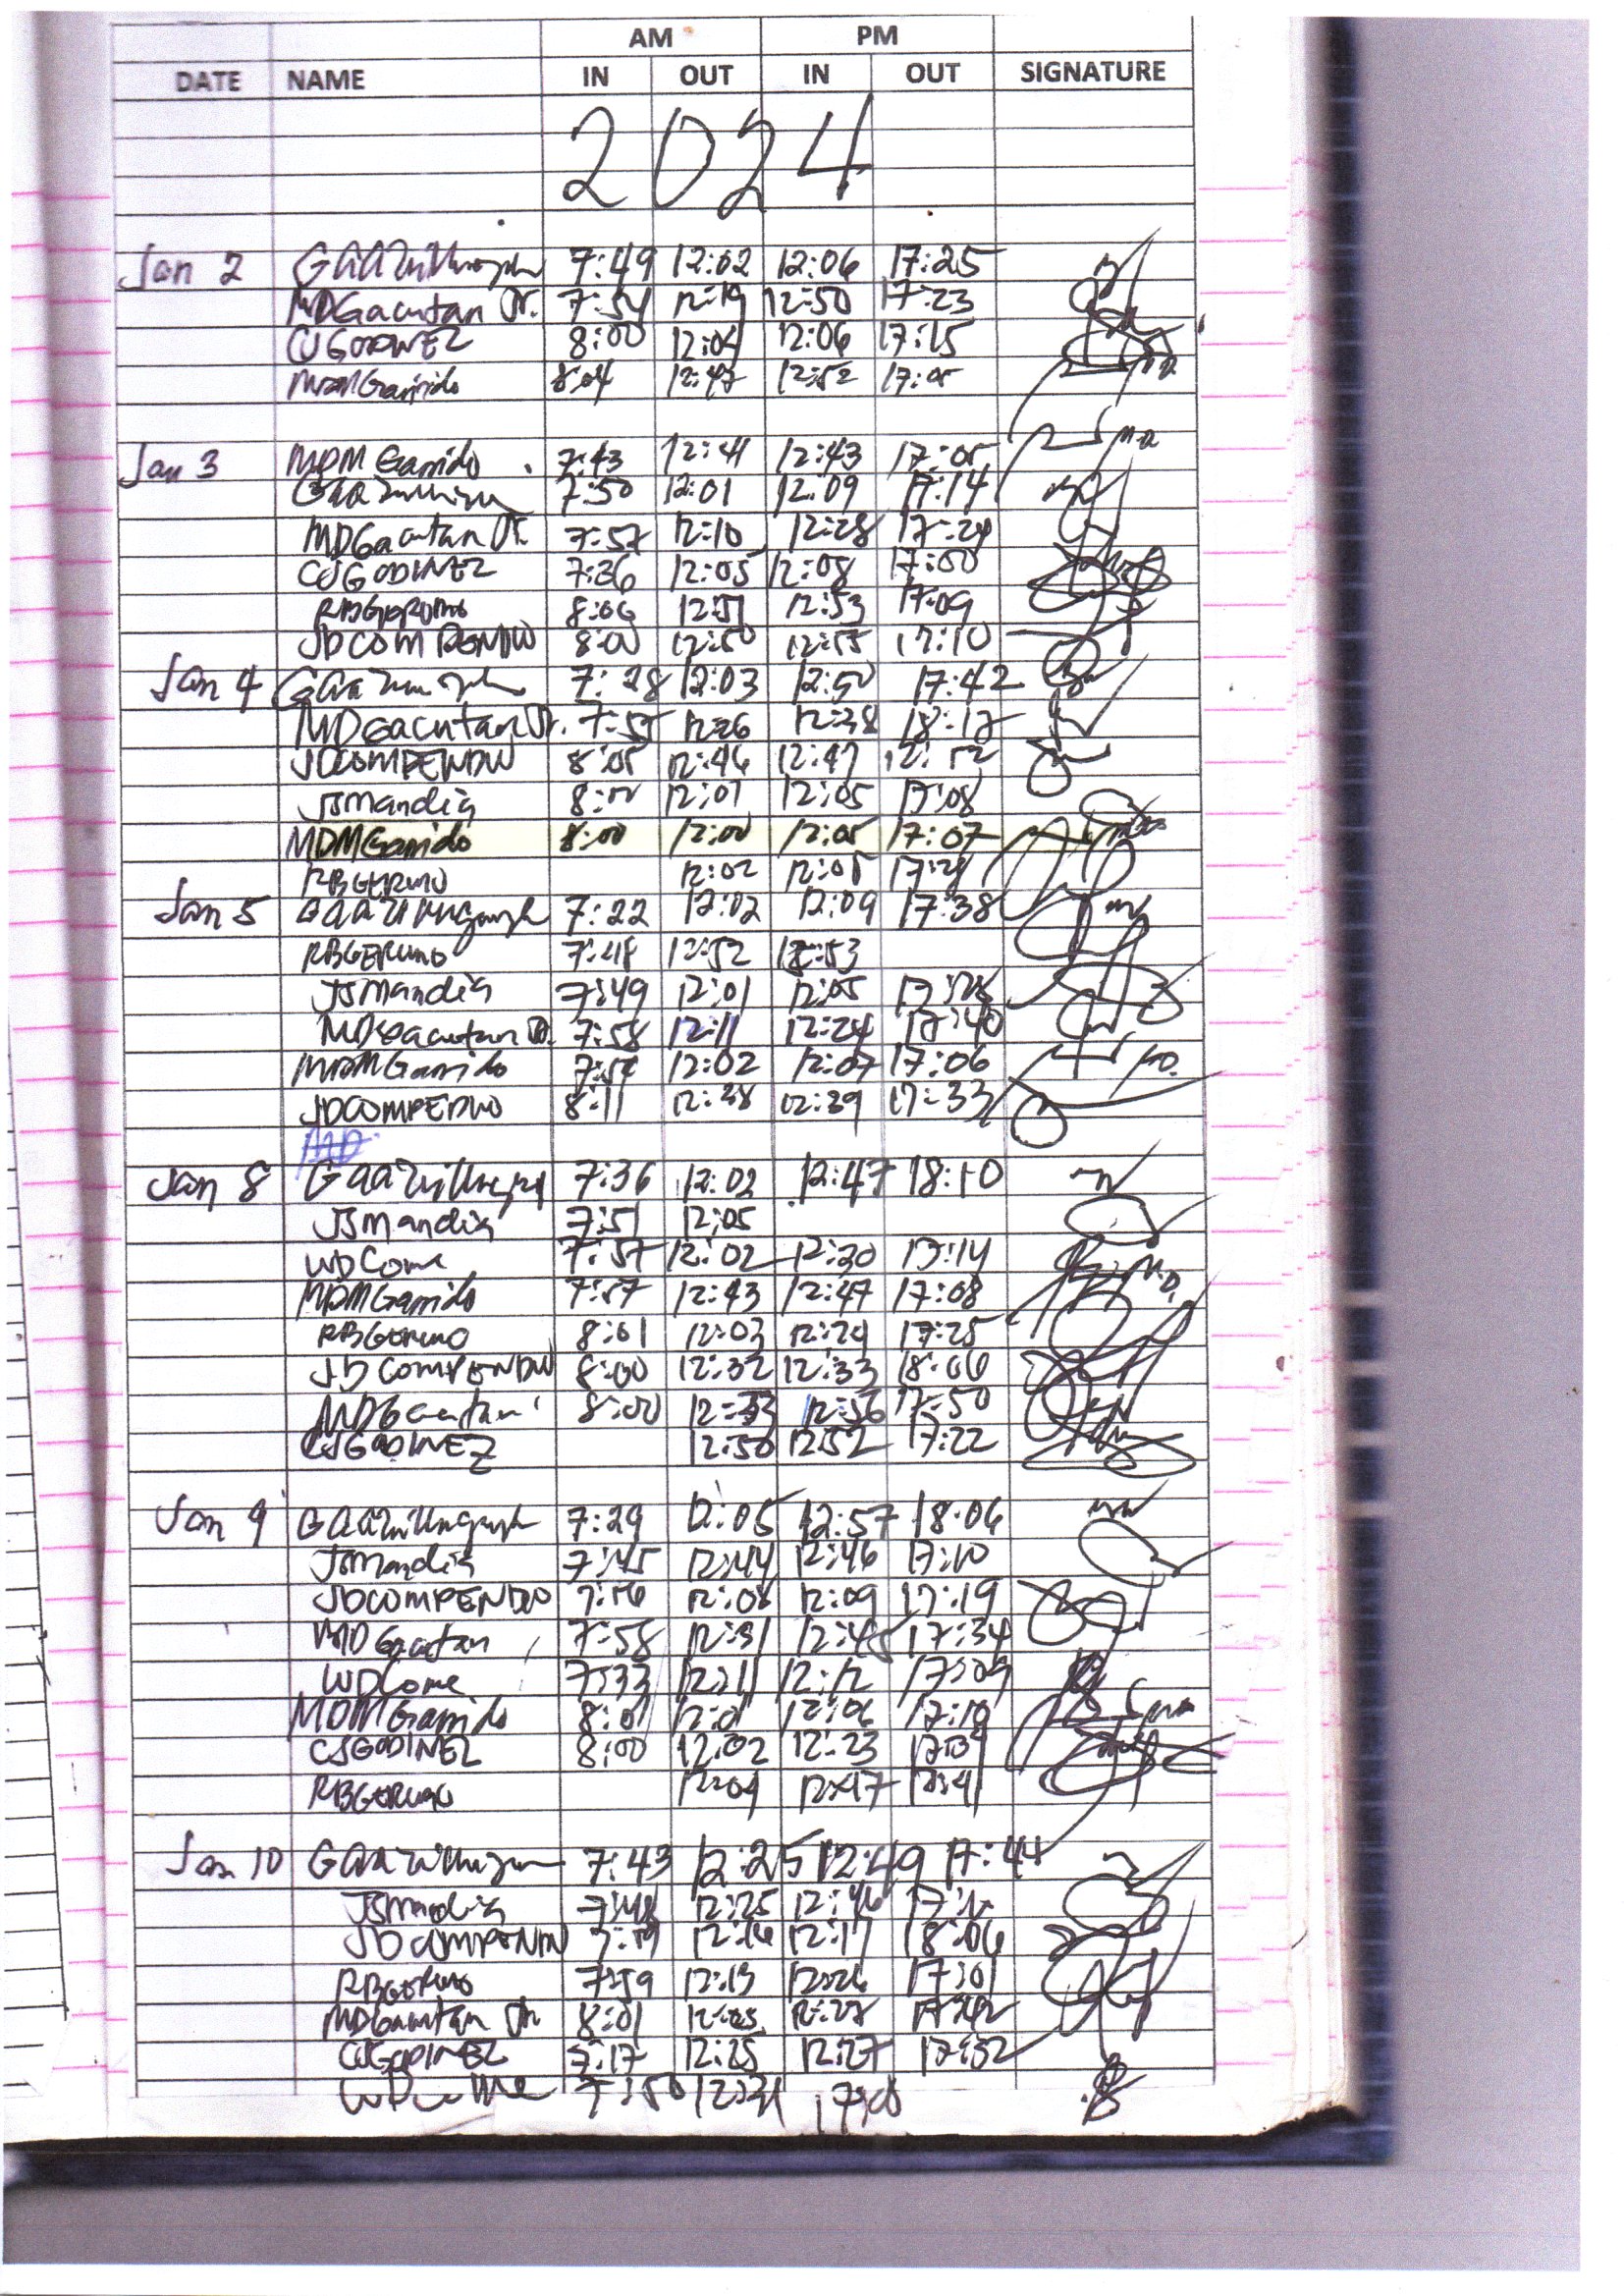 AM PM
DATE NAME IN OUT IN OUT SIGNATURE
2024
Jan 2 7:49 12:02 12:06 17:25
MDGacutan Jr. 7:54 12:19 12:50 17:23
CJGODINEZ 8:00 12:04 12:06 17:15
MDMGarrido 8:04 12:47 12:52 17:05
Jan 3 MDMGarrido 7:43 12:41 12:43 17:05
7:50 12:01 12:09 17:14
MDGacutan Jr. 7:57 12:10 12:28 17:24
CJGODINEZ 7:36 12:05 12:08 17:00
8:00 12:51 12:53 17:09
JDCOMPENDIO 8:00 12:50 12:55 17:10
Jan 4 7:28 12:03 12:50 17:42
MDGacutan Jr. 7:55 12:26 12:38 18:17
JDCOMPENDIO 8:05 12:46 12:47
JSMandia 12:01 12:05 17:08
MDMGarrido 8:00 12:00 12:05 17:07
RBGERUNO 12:02 12:05
Jan 5 7:22 12:02 12:09 17:38
RBGERUNO 7:48 12:52 12:53
JSMandia 7:49 12:01 12:05 17:28
MDGacutan Jr. 7:58 12:11 12:24 17:40
MDMGarrido 12:02 12:07 17:06
JDCOMPENDIO 8:11 12:38 12:39 17:33
Jan 8 7:36 12:02 12:47 18:10
JSMandia 7:51 12:05
WDCome 7:57 12:02 12:30 17:14
MDMGarrido 7:57 12:43 12:47 17:08
RBGeruno 8:01 12:03 12:29 17:25
JDCOMPENDIO 8:00 12:32 12:33 18:00
MDGacutan 8:00 12:33 12:56 17:50
CJGODINEZ 12:50 12:52 17:22
Jan 9 7:29 12:05 12:57 18:06
JSMandia 7:45 12:44 12:46 17:10
JDCOMPENDIO 7:56 12:08 12:09 17:19
MDGacutan 7:58 12:31 12:45 17:34
WDCome 7:33 12:11 12:12 17:09
MDMGarrido 8:01 12:01 12:06 17:10
CJGODINEZ 8:00 12:02 12:23
RBGERUNO 12:04 12:47
Jan 10 7:43 12:25 12:49 17:44
JSMandia 7:48 12:25 12:46
JDCOMPENDIO 7:59 12:16 12:17 18:06
RBGeruno 7:59 12:13 12:26 17:01
MDGacutan Jr 8:01 12:25 12:27 17:42
CJGODINEZ 7:17 12:25 12:27 17:32
WDCome 7:50 12:31